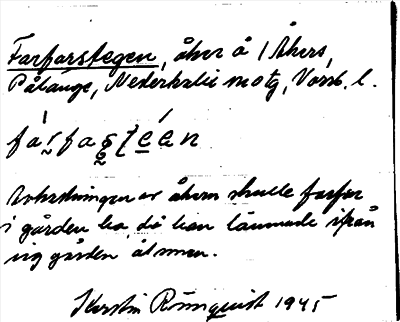 Farfarstegen, åker å 1 Åkers,
Pålänge, Nederkalix motg, Vbtn. l.
Avkastningen av åkern skulle farfar
i gården ha, då han lämnade ifrån
sig gården åt sonen.
Kerstin Rönnquist 1945